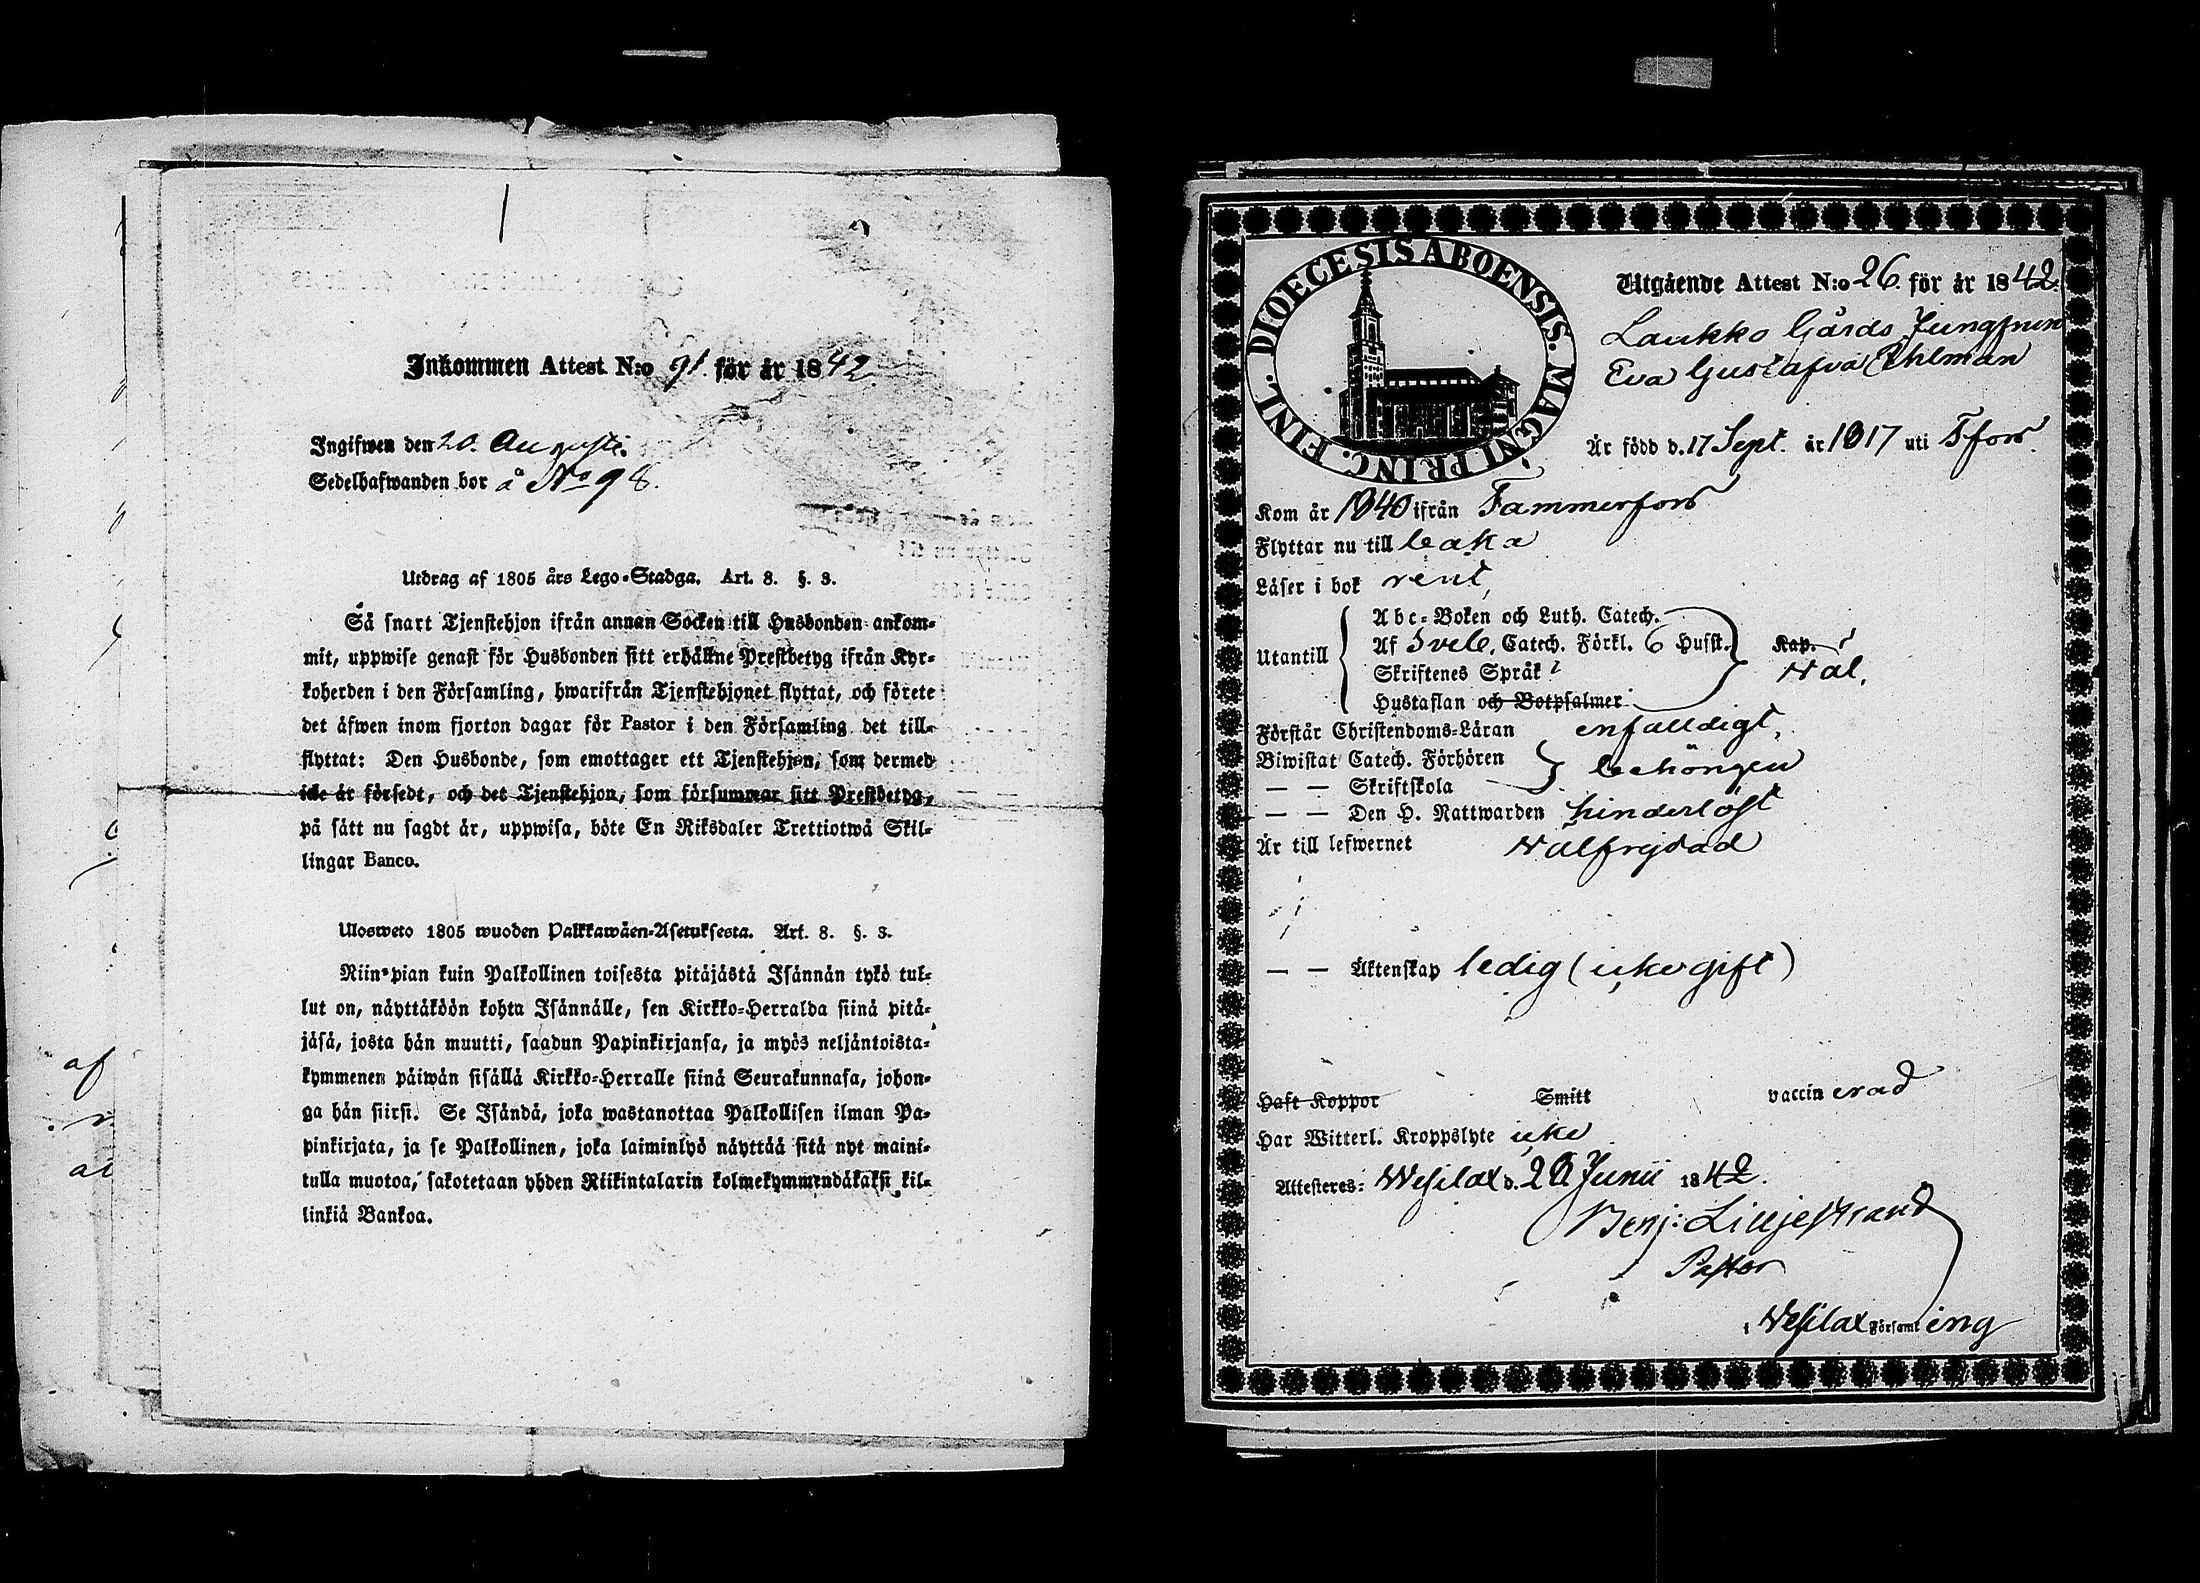 Inkommen Attest N:o 91. för år 1842.
Ingifwen den 20. Augusti.
Sedelhafwanden bor å No 98.
Utdrag af 1805 års Lego-Stadga. Art. 8. §. 3.
Så snart Tjenstehjon ifrån annan Socken till Husbonden ankom-
mit, uppwise genast för Husbonden sitt erhållne Prestbetyg ifrån Kyr-
koherden i den Församling, hwarifrån Tjenstehjonet flyttat, och förete
det äfwen inom fjorton dagar för Pastor i den Församling det till-
flyttat: Den Husbonde, som emottager ett Tjenstehjon, som dermed
icke är försedt, och det Tjenstehjon, som försummar sitt Prestbetyg,
på sätt nu sagdt är, uppwisa, böte En Riksdaler Trettiotwå Skil-
lingar Banco.
Ulosweto 1805 wuoden Palkkawäen-Asetuksesta. Art. 8. §. 3.
Niin pian kuin Palkollinen toisesta pitäjästä Isännän tykö tul-
lut on, näyttäköön kohta Isännälle, sen Kirkko-Herralda siinä pitä-
jäsä, josta hän muutti, saadun Papinkirjansa, ja myös neljäntoista-
kymmenen päiwän sisällä Kirkko-Herralle siinä Seurakunnasa, johon-
ga hän siirsi. Se Isändä, joka wastanottaa Palkollisen ilman Pa-
pinkirjata, ja se Palkollinen, joka laiminlyö näyttää sitä nyt maini-
tulla muotoa, sakotetaan yhden Riikintalarin kolmekymmendäkaksi kil-
linkiä Bankoa.
af
DIOECESIS ABOENSIS. MAGNI PRINC. FINL.
Utgående Attest N:o 26 för år 1842.
Laukko Gårds Jungfrun
Eva Gustafva Ahlman
Är född d. 17 Sept. år 1817 uti Tfors
Kom år 1840 ifrån Tammerfors
Flyttar nu till
Läser i bok rent,
Utantill
Abc-Boken och Luth. Catech.
Af Sveb. Catech. Förkl. 6 Hufst. Kap.
Skriftenes Språk
Väl.
Hustaflan och Botpsalmer
Förstår Christendoms-Läran enfalldigt,
Biwistat Catech. Förhören behörigen
— — Skriftskola
— — Den H. Nattwarden hinderlöst
Är till lefwernet Välfrejdad
— — Äktenskap ledig (icke gift)
Haft Koppor Smitt vaccinerad
Har Witterl. Kroppslyte icke
Attesteres: Wesilax d. 20 Junii 1842.
Benj: Liljestrand
Pastor
i Wesilax Församling